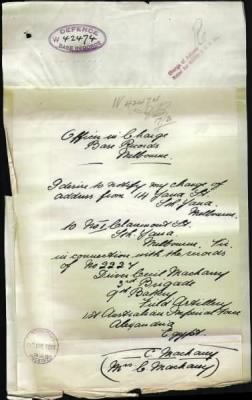 DEFENCE
W 42474
BASE RECORDS
W 42474
Officer in Charge
Base Records
Melbourne.
I desire to notify my change of
address from 14 Yarra St
Sth Yarra
Melbourne
to No 1 Claremont St
Sth Yarra
Melbourne. Vic
in connection with the records
of No 2224
Driver Cecil Machany
3rd Brigade
9th Battery
Field Artillery
1st Australian Imperial Force
Alexandria
Egypt
C. Machany
(Mrs C Machany)